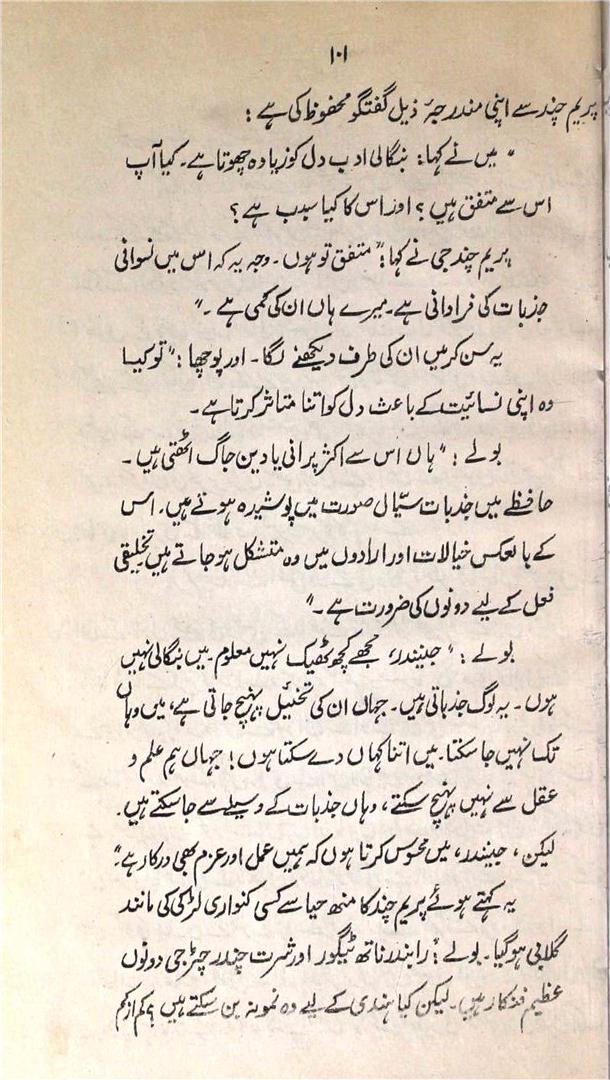 ۱۰۱
پریم چند سے اپنی مندرجۂ ذیل گفتگو محفوظ کی ہے :
" میں نے کہا: بنگالی ادب دل کو زیادہ چھوتا ہے۔ کیا آپ
اس سے متفق ہیں ؟ اور اس کا کیا سبب ہے ؟
پریم چند جی نے کہا :" متفق تو ہوں۔ وجہ یہ کہ اس میں نسوانی
جذبات کی فراوانی ہے۔ میرے ہاں ان کی کمی ہے ۔"
یہ سن کر میں ان کی طرف دیکھنے لگا۔ اور پوچھا :" تو کیا
وہ اپنی نسائیت کے باعث دل کو اتنا متاثر کرتا ہے۔
بولے : " ہاں اس سے اکثر پرانی یادیں جاگ اٹھتی ہیں ۔
حافظے میں جذبات سیّال صورت میں پوشیدہ ہوتے ہیں۔ اس
کے بالعکس خیالات اور ارادوں میں وہ متشکل ہو جاتے ہیں تخلیقی
فعل کے لیے دونوں کی ضرورت ہے ۔"
بولے : " جینندر، مجھے کچھ ٹھیک نہیں معلوم ۔ میں بنگالی نہیں
ہوں ۔ یہ لوگ جذباتی ہیں۔ جہاں ان کی تخئیل پہنچ جاتی ہے، میں وہاں
تک نہیں جا سکتا۔ میں اتنا کہاں دے سکتا ہوں! جہاں ہم علم و
عقل سے نہیں پہنچ سکتے ، وہاں جذبات کے وسیلے سے جا سکتے ہیں۔
لیکن ، جینندر، میں محسوس کرتا ہوں کہ ہمیں عمل اور عزم بھی درکار ہے"
یہ کہتے ہوئے پریم چند کا منھ حیا سے کسی کنواری لڑکی کی مانند
گلابی ہو گیا۔ بولے :" رابندر ناتھ ٹیگور اور شرت چندر چٹرجی دونوں
عظیم فنکار ہیں۔ لیکن کیا ہندی کے لیے وہ نمونہ بن سکتے ہیں ؟ کم از کم